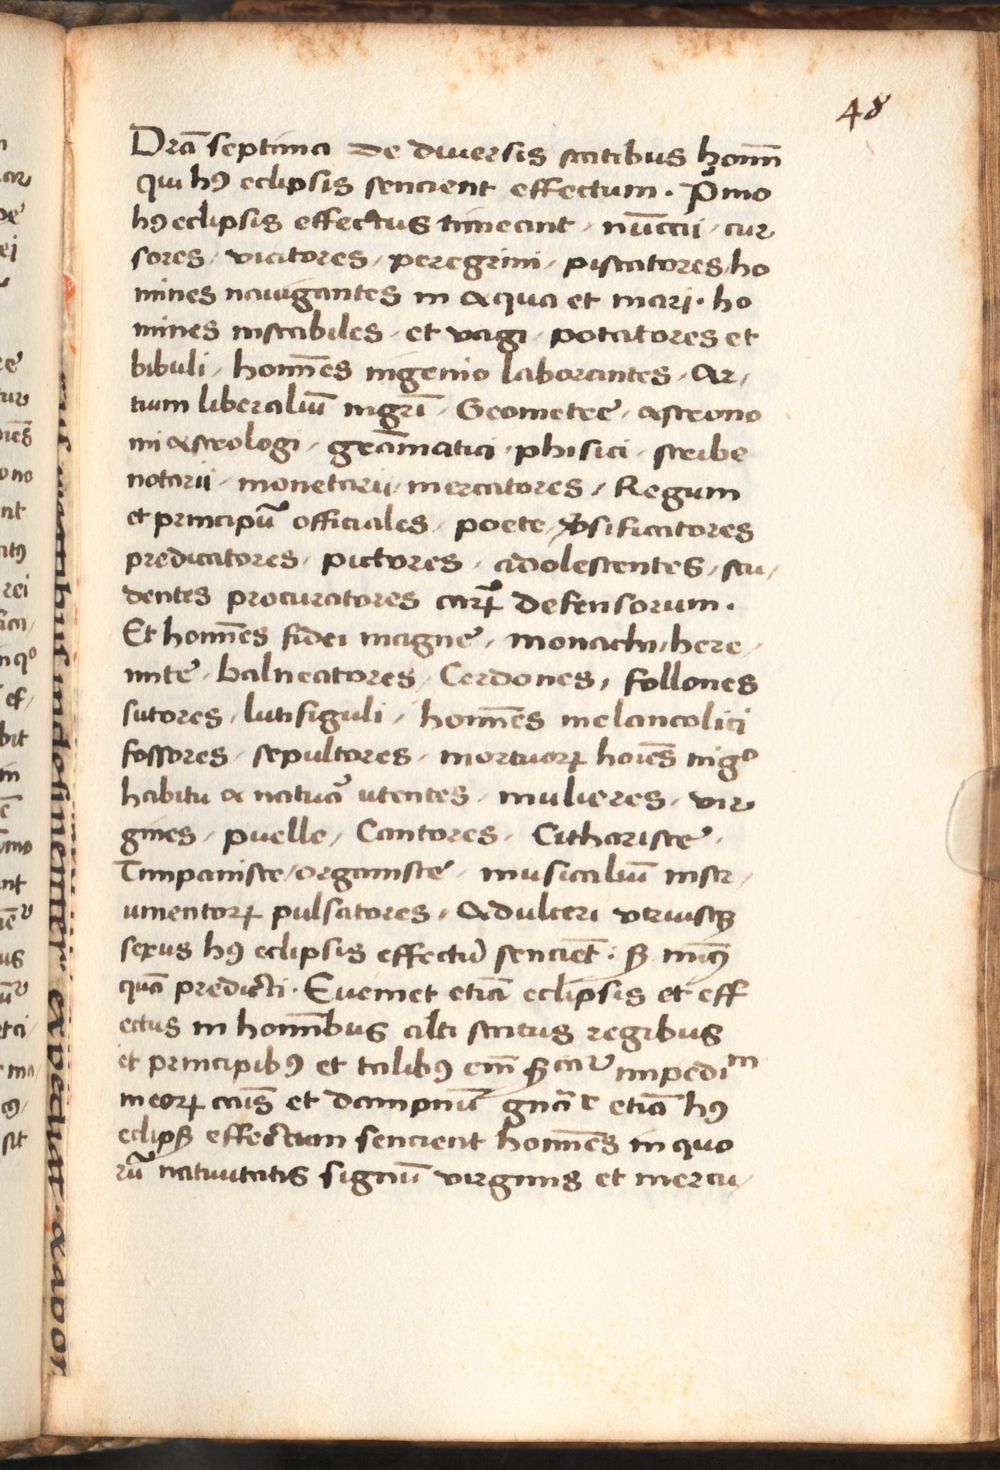 48
Dr̄a septima De diuersis statibus hom̄
qui hꝯ eclipsis sencient effectum . P̄mo
hꝯ eclipsis effectus timeant / nūccii / cur
sores / viatores / peregrini / piscatores / ho
mines nauigantes in aqua et mari . ho
mines instabiles et vagi / potatores et
bibuli / hom̄es ingenio laborantes / Ar/
tium liberaliū mgr̄i / Geometre / astrono
mi astrologi / gram̄atici / phisici / scribe
notarii / monetarii / mercatores / Regum
et principū officiales / poete / ꝟsificatores
predicatores / pictores / adolescentes / stu/
dentes procuratores carꝝ defensorum .
Et hom̄es fidei magne / monachi / here/
mite / balneatores / Cerdones / follones
sutores / lutifiguli / hom̄es melancolici
fossores / sepultores / mortuorꝝ hoīes nigº
habitu & natura utentes / mulieres / vir
gines / puelle / Cantores / Cithariste /
Timpaniste / organiste / musicaliū instr/
umentorꝝ pulsatores / Adulteri vtriusqꝫ
sexus hꝯ eclipsis effectū sencient . sꝫ minꝯ
quā predicti . Eueniet etiā eclipsis et eff
ectus in homībus alti status regibus
et principibꝯ et talibꝯ em̄ impedim
in eorꝝ et dampnū etiā hꝯ
eclips effectum sencient hom̄es in quo
rū natiuitatis signū virginis et mercu/